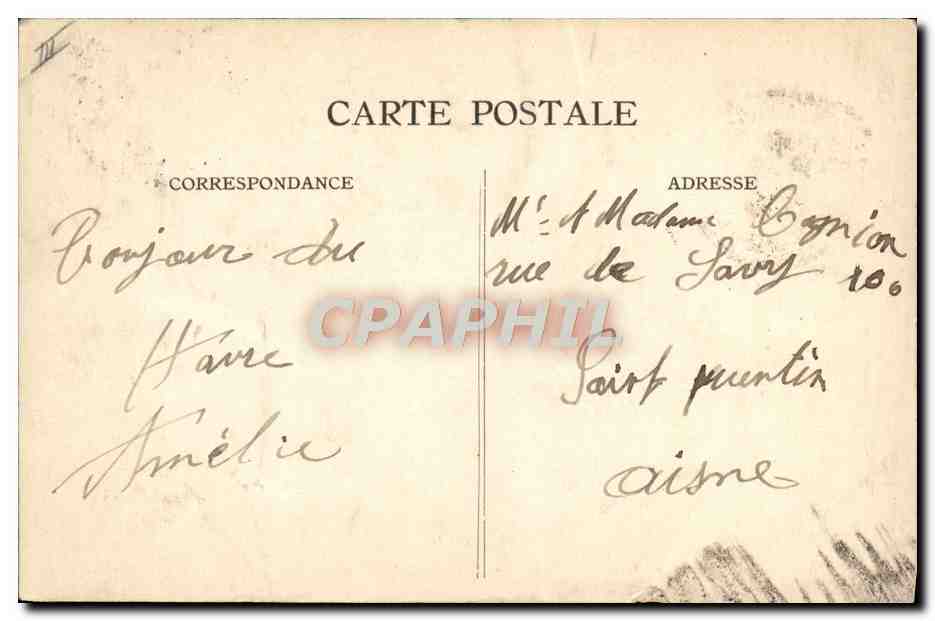 III
CARTE POSTALE
CORRESPONDANCE
Bonjour du
Hâvre
Amélie
ADRESSE
Mr et Madame
rue de Savy 100
Saint quentin
aisne
CPAPHIL